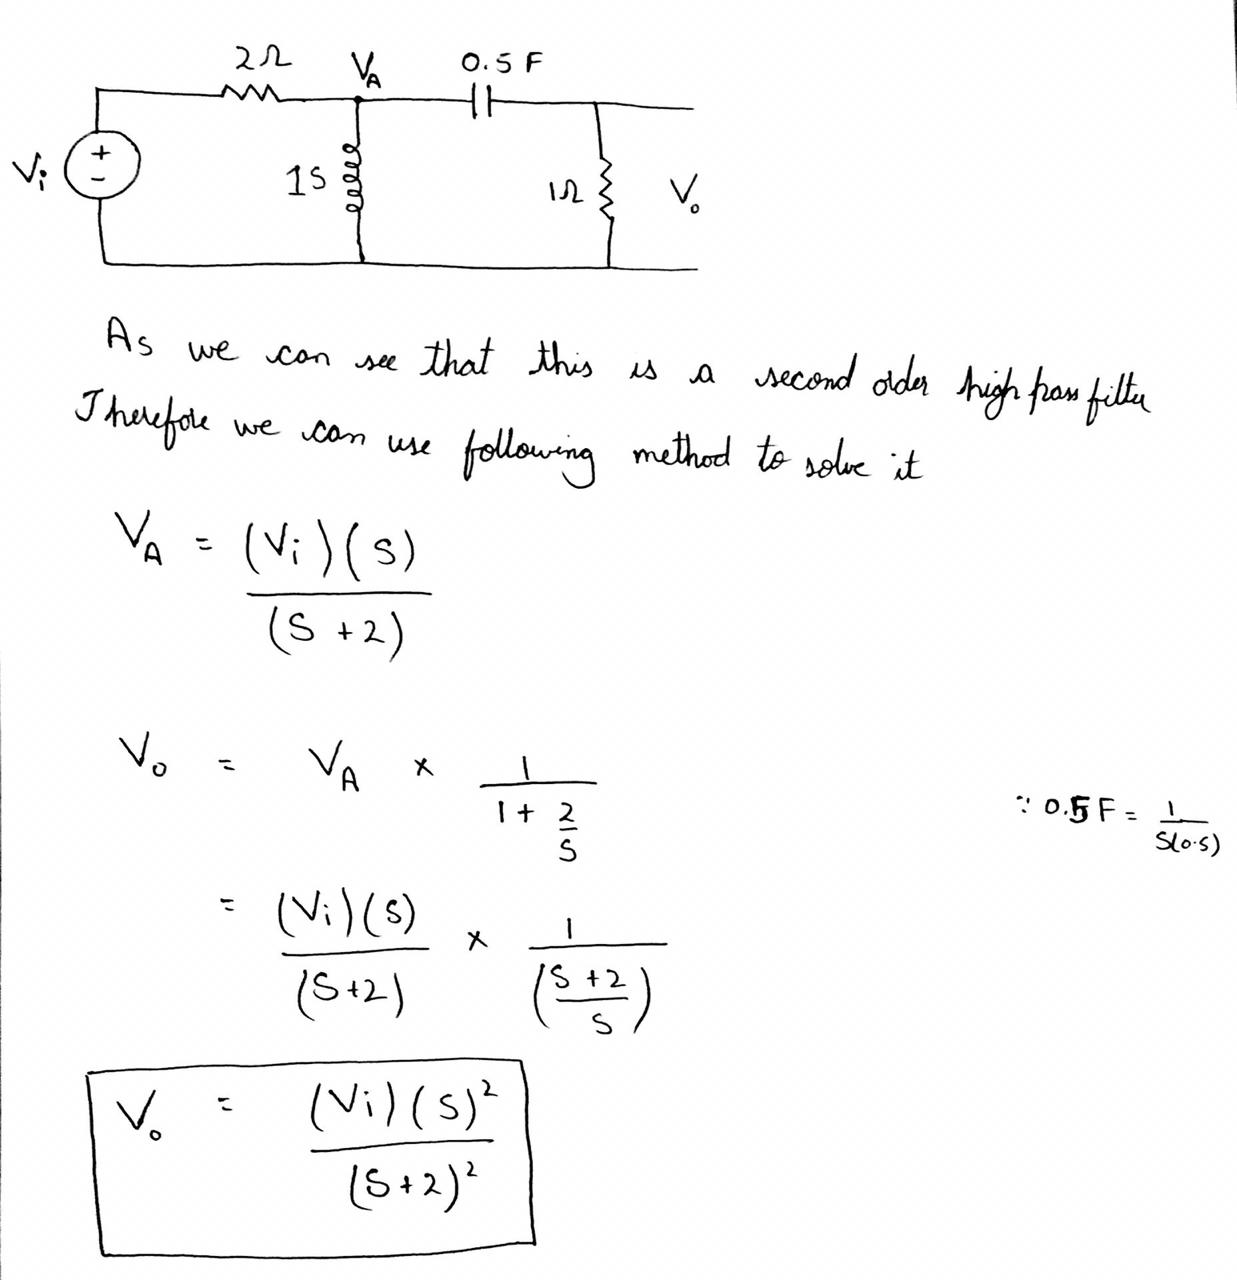 2Ω V_A 0.5 F
V_i + - 1S 1Ω V_o
As we can see that this is a second order high pass filter
Therefore we can use following method to solve it
V_A = (V_i)(S) / (S + 2)
V_o = V_A × 1 / (1 + 2/S) ∵ 0.5 F = 1 / S(0.5)
= (V_i)(S) / (S+2) × 1 / ((S + 2)/S)
V_o = (V_i)(S)² / (S+2)²